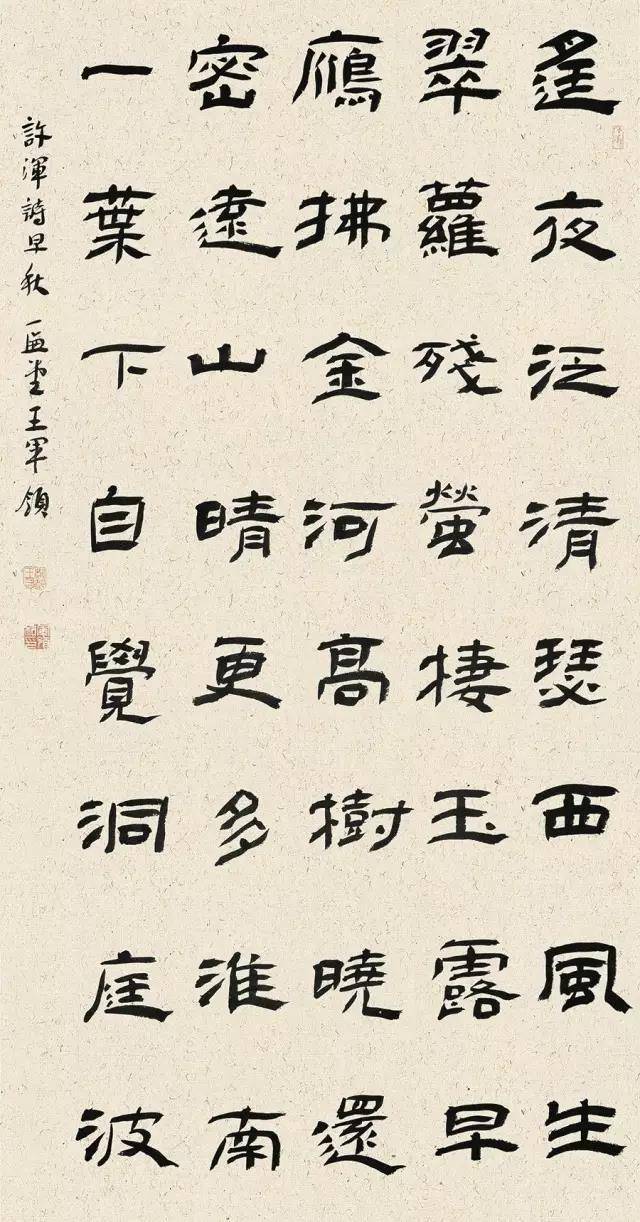 遙夜泛清瑟西風生
翠蘿殘螢棲玉露早
鴈拂金河高樹曉還
密遠山晴更多淮南
一葉下自覺洞庭波
許渾詩早秋 一堂王軍領